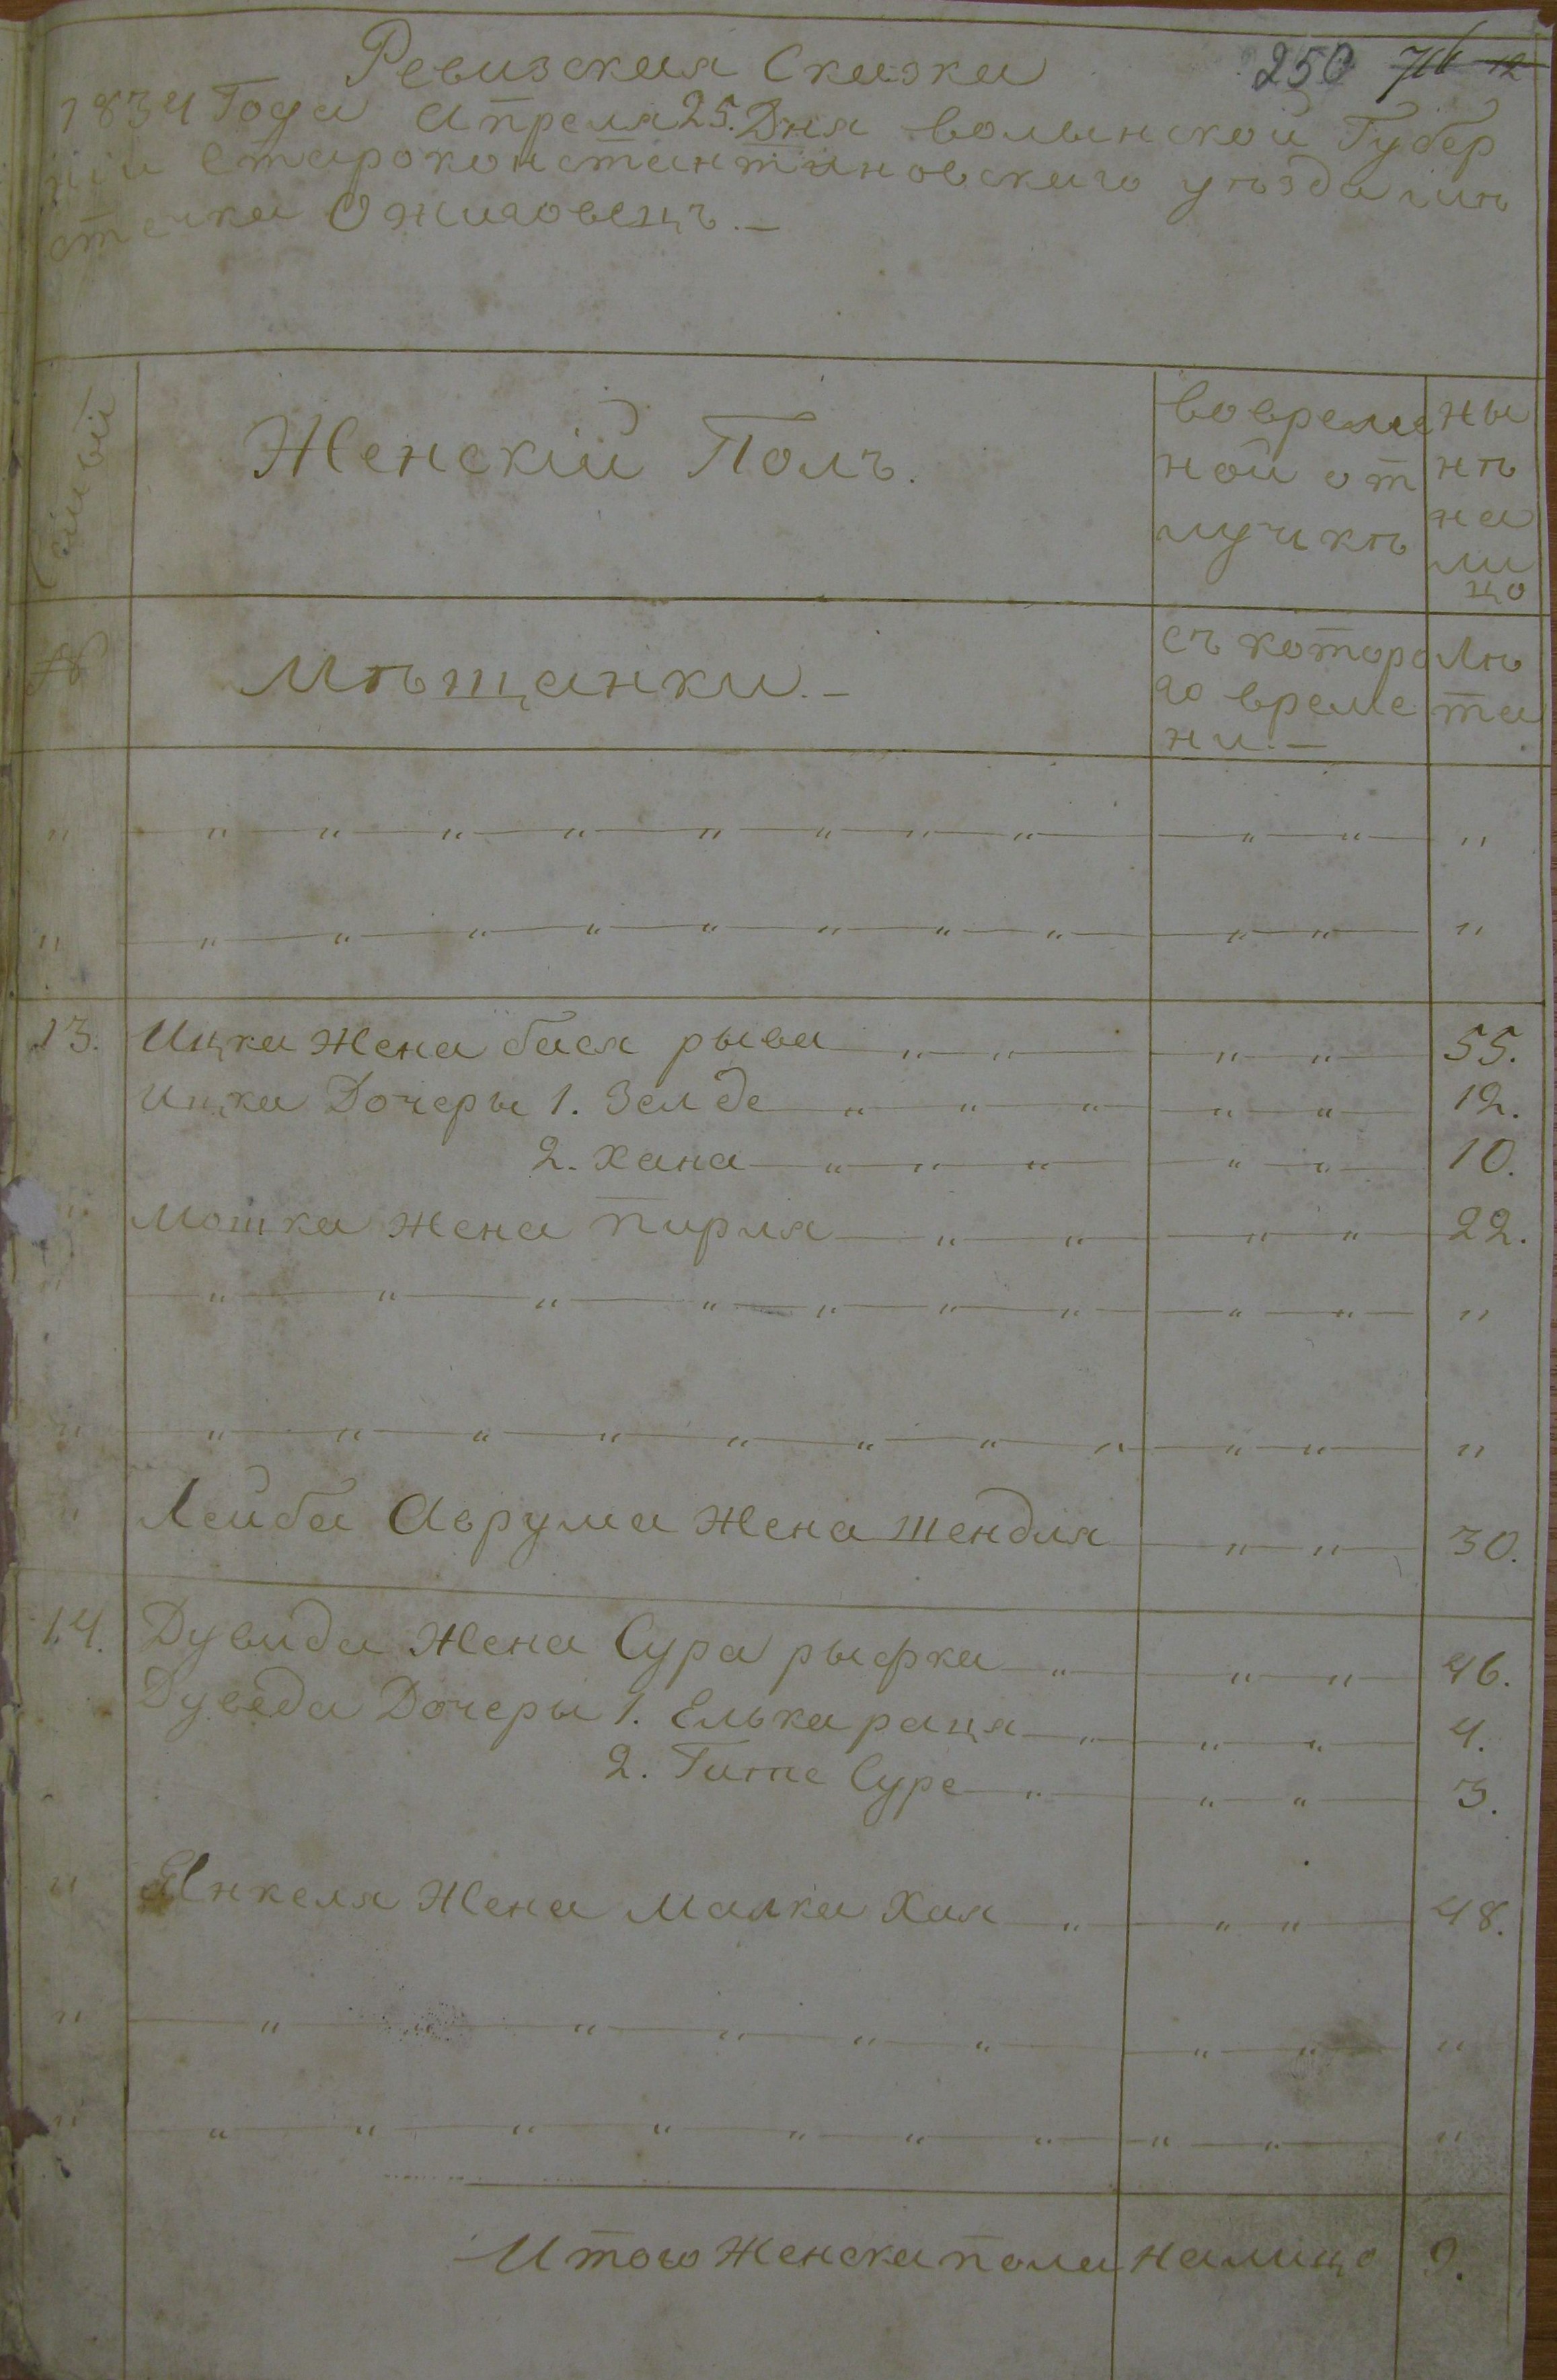 Ревизская Сказка 250 716 12
1834 Года Апреля 25. Дня Волынской Губер
ніи Староконстантиновскаго уѣзда мѣ
стечка Ожиговецъ.—
Семьи Женскій Полъ. Во време ны
ной от нѣ
лучкѣ на
ли
цо
№ Мѣщанки.— съ которо лѣ
го време та
ни.—
" " " " " " " " " " " "
" " " " " " " " " " " "
13. Ицка Жена бася рыва " " " " 55.
Ицка Дочеры 1. Зелде " " " " " 12.
2. хана " " " " " 10.
" Мошка Жена пирля " " " " 22.
" " " " " " " " " " "
" " " " " " " " " " " "
" Лейба Аврума Жена шендля " " 30.
14. Дувида Жена Сура рыфка " " " 46.
Дуведа Дочеры 1. Елька раця " " " 4.
2. Гитле Суре " " " 3.
" Янкеля Жена малка Хая " " " 48.
" " " " " " " " " "
" " " " " " " " " " "
Итого Женска пола налицо 9.